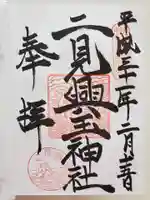 平成三十一年二月
二見興玉神社
奉拝